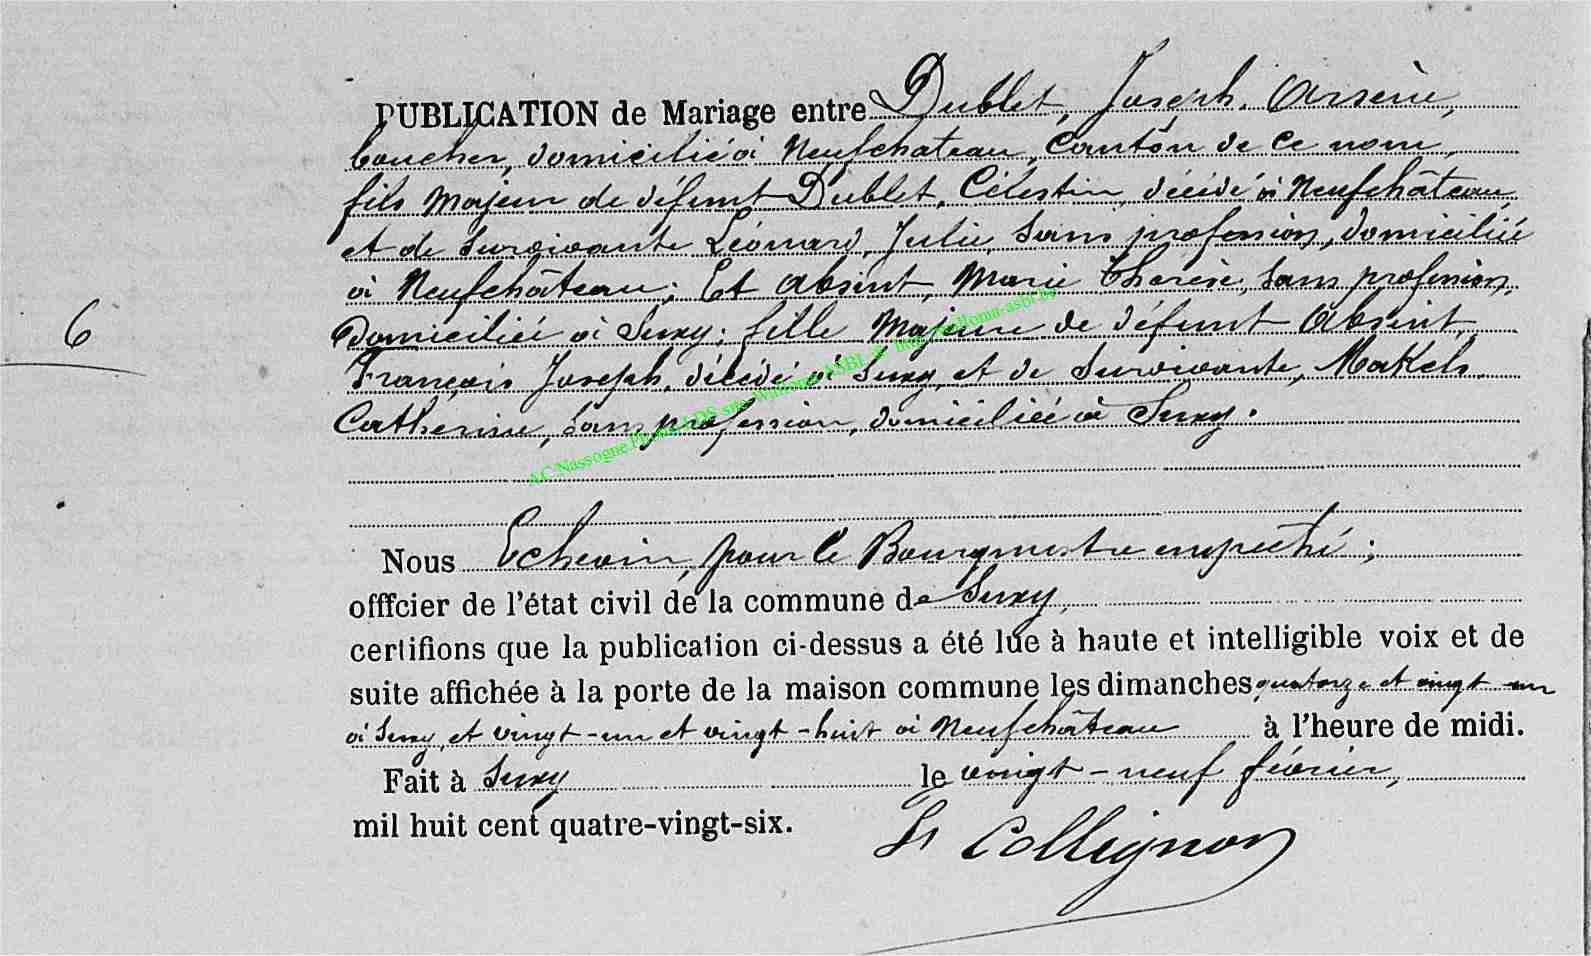 PUBLICATION de Mariage entre Dublet, Joseph, Arsène,
boucher, domicilié à Neufchateau, Canton de ce nom,
fils Majeur de défunt Dublet, Célestin, décédé à Neufchâteau,
et de survivante Léonard, Julie, sans profession, domiciliée
à Neufchâteau; Et Absint, Marie Thérèse, sans profession,
6
domiciliée à Suxy; fille Majeure de défunt Absint,
François Joseph, décédé à Suxy, et de survivante, Makels,
Catherine, sans profession, domiciliée à Suxy.
AC Nassogne LDS site Wallonia ASBL wallonia-asbl.be
Nous Echevin, pour le Bourgmestre empêché;
offfcier de l'état civil de la commune de Suxy,
certifions que la publication ci-dessus a été lue à haute et intelligible voix et de
suite affichée à la porte de la maison commune les dimanches quatorze et vingt-un
à Suxy, et vingt-un et vingt-huit à Neufchâteau à l'heure de midi.
Fait à Suxy le vingt-neuf février,
mil huit cent quatre-vingt-six.
Collignon